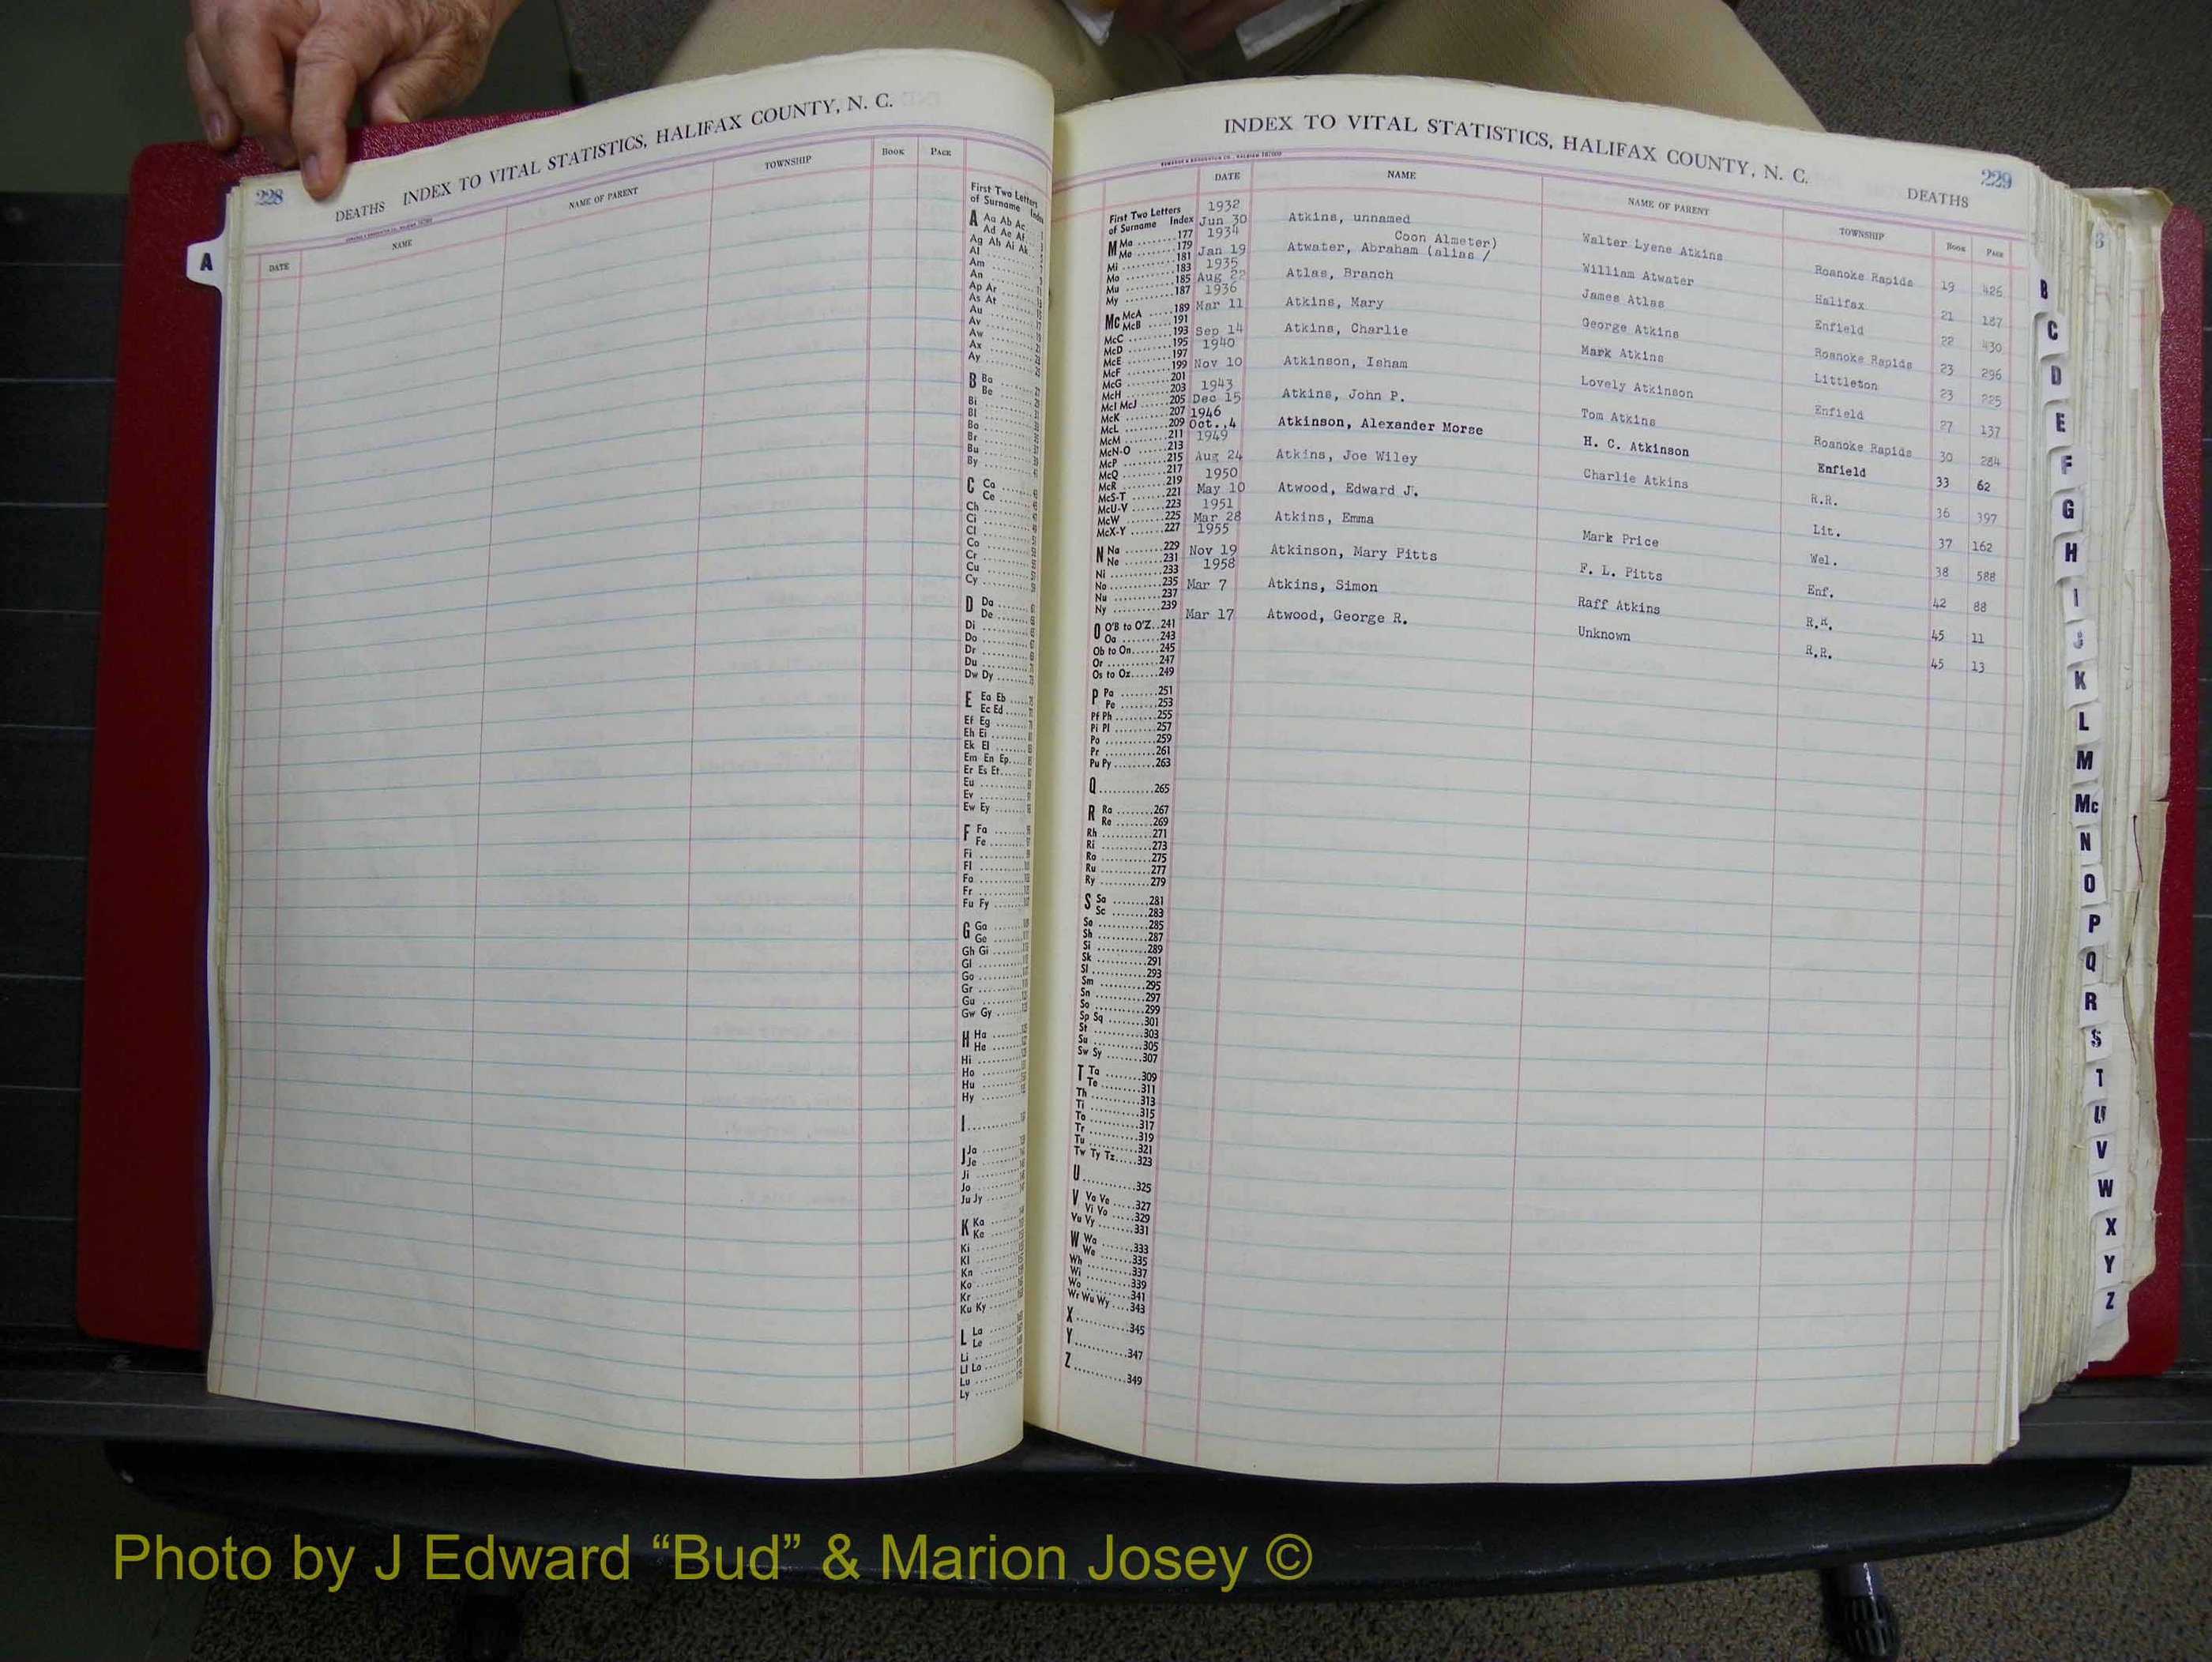 228
DEATHS INDEX TO VITAL STATISTICS, HALIFAX COUNTY, N. C.
DATE NAME NAME OF PARENT TOWNSHIP BOOK PAGE
A
First Two Letters
of Surname Index
A Aa Ab Ac
Ad Ae Af
Ag Ah Ai Ak
Al
Am
An
Ap Ar
As At
Au
Av
Aw
Ax
Ay
B Ba
Be
Bi
Bl
Bo
Br
Bu
By
C Ca
Ce
Ch
Ci
Cl
Co
Cr
Cu
Cy
D Da
De
Di
Do
Dr
Du
Dw Dy
E Ea Eb
Ec Ed
Ef Eg
Eh Ei
Ek El
Em En Ep
Er Es Et
Eu
Ev
Ew Ey
F Fa
Fe
Fi
Fl
Fo
Fr
Fu Fy
G Ga
Ge
Gh Gi
Gl
Go
Gr
Gu
Gw Gy
H Ha
He
Hi
Ho
Hu
Hy
I
J Ja
Je
Ji
Jo
Ju Jy
K Ka
Ke
Ki
Kl
Kn
Ko
Kr
Ku Ky
L La
Le
Li
Ll Lo
Lu
Ly
INDEX TO VITAL STATISTICS, HALIFAX COUNTY, N. C.
229
DEATHS
DATE NAME NAME OF PARENT TOWNSHIP BOOK PAGE
First Two Letters
of Surname Index
M Ma ........177
Me ........179
Mi ..........181
Mo ..........183
Mu ..........185
My ..........187
Mc McA .....189
McB .....191
McC ........193
McD ........195
McE ........197
McF ........199
McG ........201
McH ........203
McI McJ ......205
McK ........207
McL ........209
McM ........211
McN-O ......213
McP ........215
McQ ........217
McR ........219
McS-T .......221
McU-V ......223
McW ........225
McX-Y .......227
N Na ........229
Ne ........231
Ni ..........233
No ..........235
Nu ..........237
Ny ..........239
O O'B to O'Z..241
Oa ........243
Ob to On......245
Or ..........247
Os to Oz......249
P Pa ........251
Pe ........253
Pf Ph ........255
Pi Pl ........257
Po ..........259
Pr ..........261
Pu Py ........263
Q............265
R Ra ........267
Re ........269
Rh ..........271
Ri ..........273
Ro ..........275
Ru ..........277
Ry ..........279
S Sa ........281
Sc ........283
Se ..........285
Sh ..........287
Si ..........289
Sk ..........291
Sl ..........293
Sm ..........295
Sn ..........297
So ..........299
Sp Sq .......301
St ..........303
Su ..........305
Sw Sy .......307
T Ta ........309
Te ........311
Th ..........313
Ti ..........315
To ..........317
Tr ..........319
Tu ..........321
Tw Ty Tz.....323
U............325
V Va Ve .....327
Vi Vo .....329
Vu Vy .......331
W Wa ........333
We ........335
Wh ..........337
Wi ..........339
Wo ..........341
Wr Wu Wy ....343
X............345
Y............347
Z............349
1932
Jun 30 Atkins, unnamed Walter Lyene Atkins Roanoke Rapids 19 426
1934 Coon Almeter)
Jan 19 Atwater, Abraham (alias / William Atwater Halifax 21 187
1935
Aug 22 Atlas, Branch James Atlas Enfield 22 430
1936
Mar 11 Atkins, Mary George Atkins Roanoke Rapids 23 296
Sep 14 Atkins, Charlie Mark Atkins Littleton 23 225
1940
Nov 10 Atkinson, Isham Lovely Atkinson Enfield 27 137
1943
Dec 15 Atkins, John P. Tom Atkins Roanoke Rapids 30 284
1946
Oct.,4 Atkinson, Alexander Morse H. C. Atkinson Enfield 33 62
1949
Aug 24 Atkins, Joe Wiley Charlie Atkins R.R. 36 397
1950
May 10 Atwood, Edward J. Lit. 37 162
1951
Mar 28 Atkins, Emma Mark Price Wel. 38 588
1955
Nov 19 Atkinson, Mary Pitts F. L. Pitts Enf. 42 88
1958
Mar 7 Atkins, Simon Raff Atkins R.R. 45 11
Mar 17 Atwood, George R. Unknown R.R. 45 13
B
C
D
E
F
G
H
I
J
K
L
M
Mc
N
O
P
Q
R
S
T
U
V
W
X
Y
Z
Photo by J Edward “Bud” & Marion Josey ©